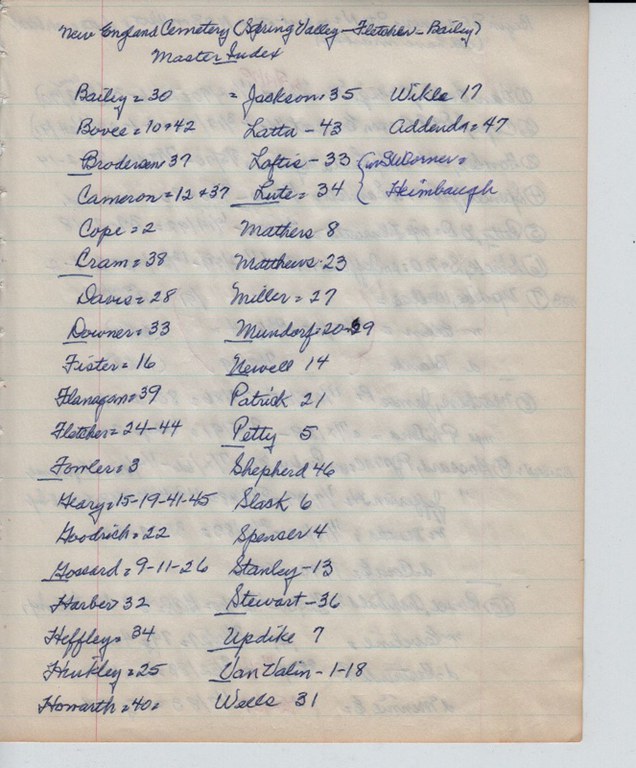 New England Cemetery (Spring Valley - Fletcher - Baily)
Master Index
Bailey = 30
Bovee = 10 + 42
Brodersen = 37
Cameron = 12 + 37
Cope = 2
Cram = 38
Davis = 28
Downer = 33
Fister = 16
Flanagan = 39
Fletcher = 24-44
Fowler = 3
Heary = 15-19-41-45
Goodrich = 22
Gossard = 9-11-26
Harber 32
Heffley = 34
Hinkley = 25
Howarth = 40 =
= Jackson = 35
Latta - 43
Loftis - 33
Lute = 34
Mathers 8
Matthews - 23
Miller = 27
Mundorf = 20 - 29
Newell 14
Patrick 21
Petty - 5
Shepherd 46
Slask 6
Spenser 4
Stanley - 13
Stewart - 36
Updike 7
Van Valin - 1-18
Wells 31
Wikle 17
Addenda = 47
{ in SW Corner =
Heimbaugh